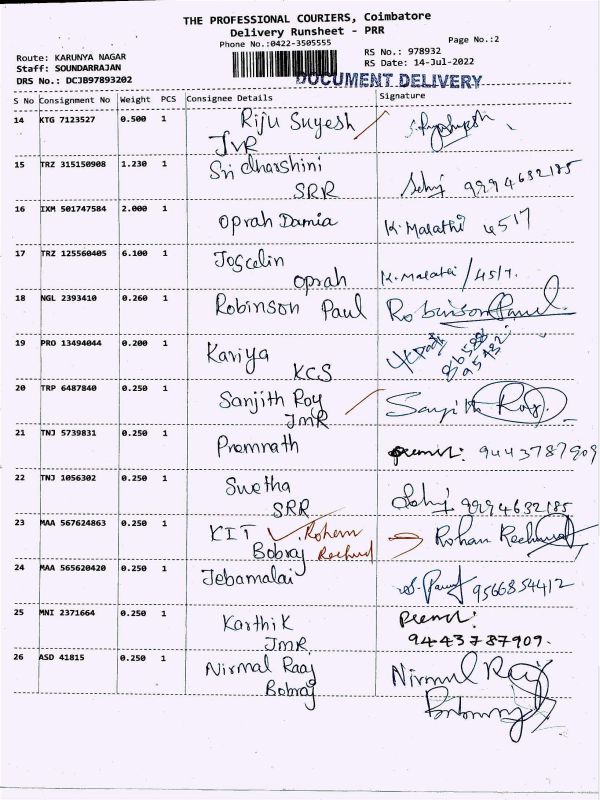 THE PROFESSIONAL COURIERS, Coimbatore
Delivery Runsheet - PRR
Phone No.:0422-3505555
Page No.:2
Route: KARUNYA NAGAR
RS No.: 978932
Staff: SOUNDARRAJAN
RS Date: 14-Jul-2022
DRS No.: DCJB97893202
DOCUMENT DELIVERY
S No Consignment No Weight PCS Consignee Details Signature
14 KTG 7123527 0.500 1 Riju Suyesh
JVR
15 TRZ 315150908 1.230 1 Sri dharshini
SRR 9994632185
16 IXM 501747584 2.000 1 Oprah Damia K. Malathi 4517
17 TRZ 125560405 6.100 1 Joscelin
Oprah K. Malathi / 4517.
18 NGL 2393410 0.260 1 Robinson Paul Robinson Paul.
19 PRO 13494044 0.200 1 Kaviya
KCS
20 TRP 6487840 0.250 1 Sanjith Roy Sanjith Roy.
JMR
21 TNJ 5739831 0.250 1 Premnath 9443787909
22 TNJ 1056302 0.250 1 Swetha
SRR 9994632185
23 MAA 567624863 0.250 1 KIT Rohan
Bobraj
24 MAA 565620420 0.250 1 Jebamalai 9566854412
25 MNI 2371664 0.250 1 Karthik
JMR 9443787909.
26 ASD 41815 0.250 1 Nirmal Raaj Nirmal Raj
Bobraj